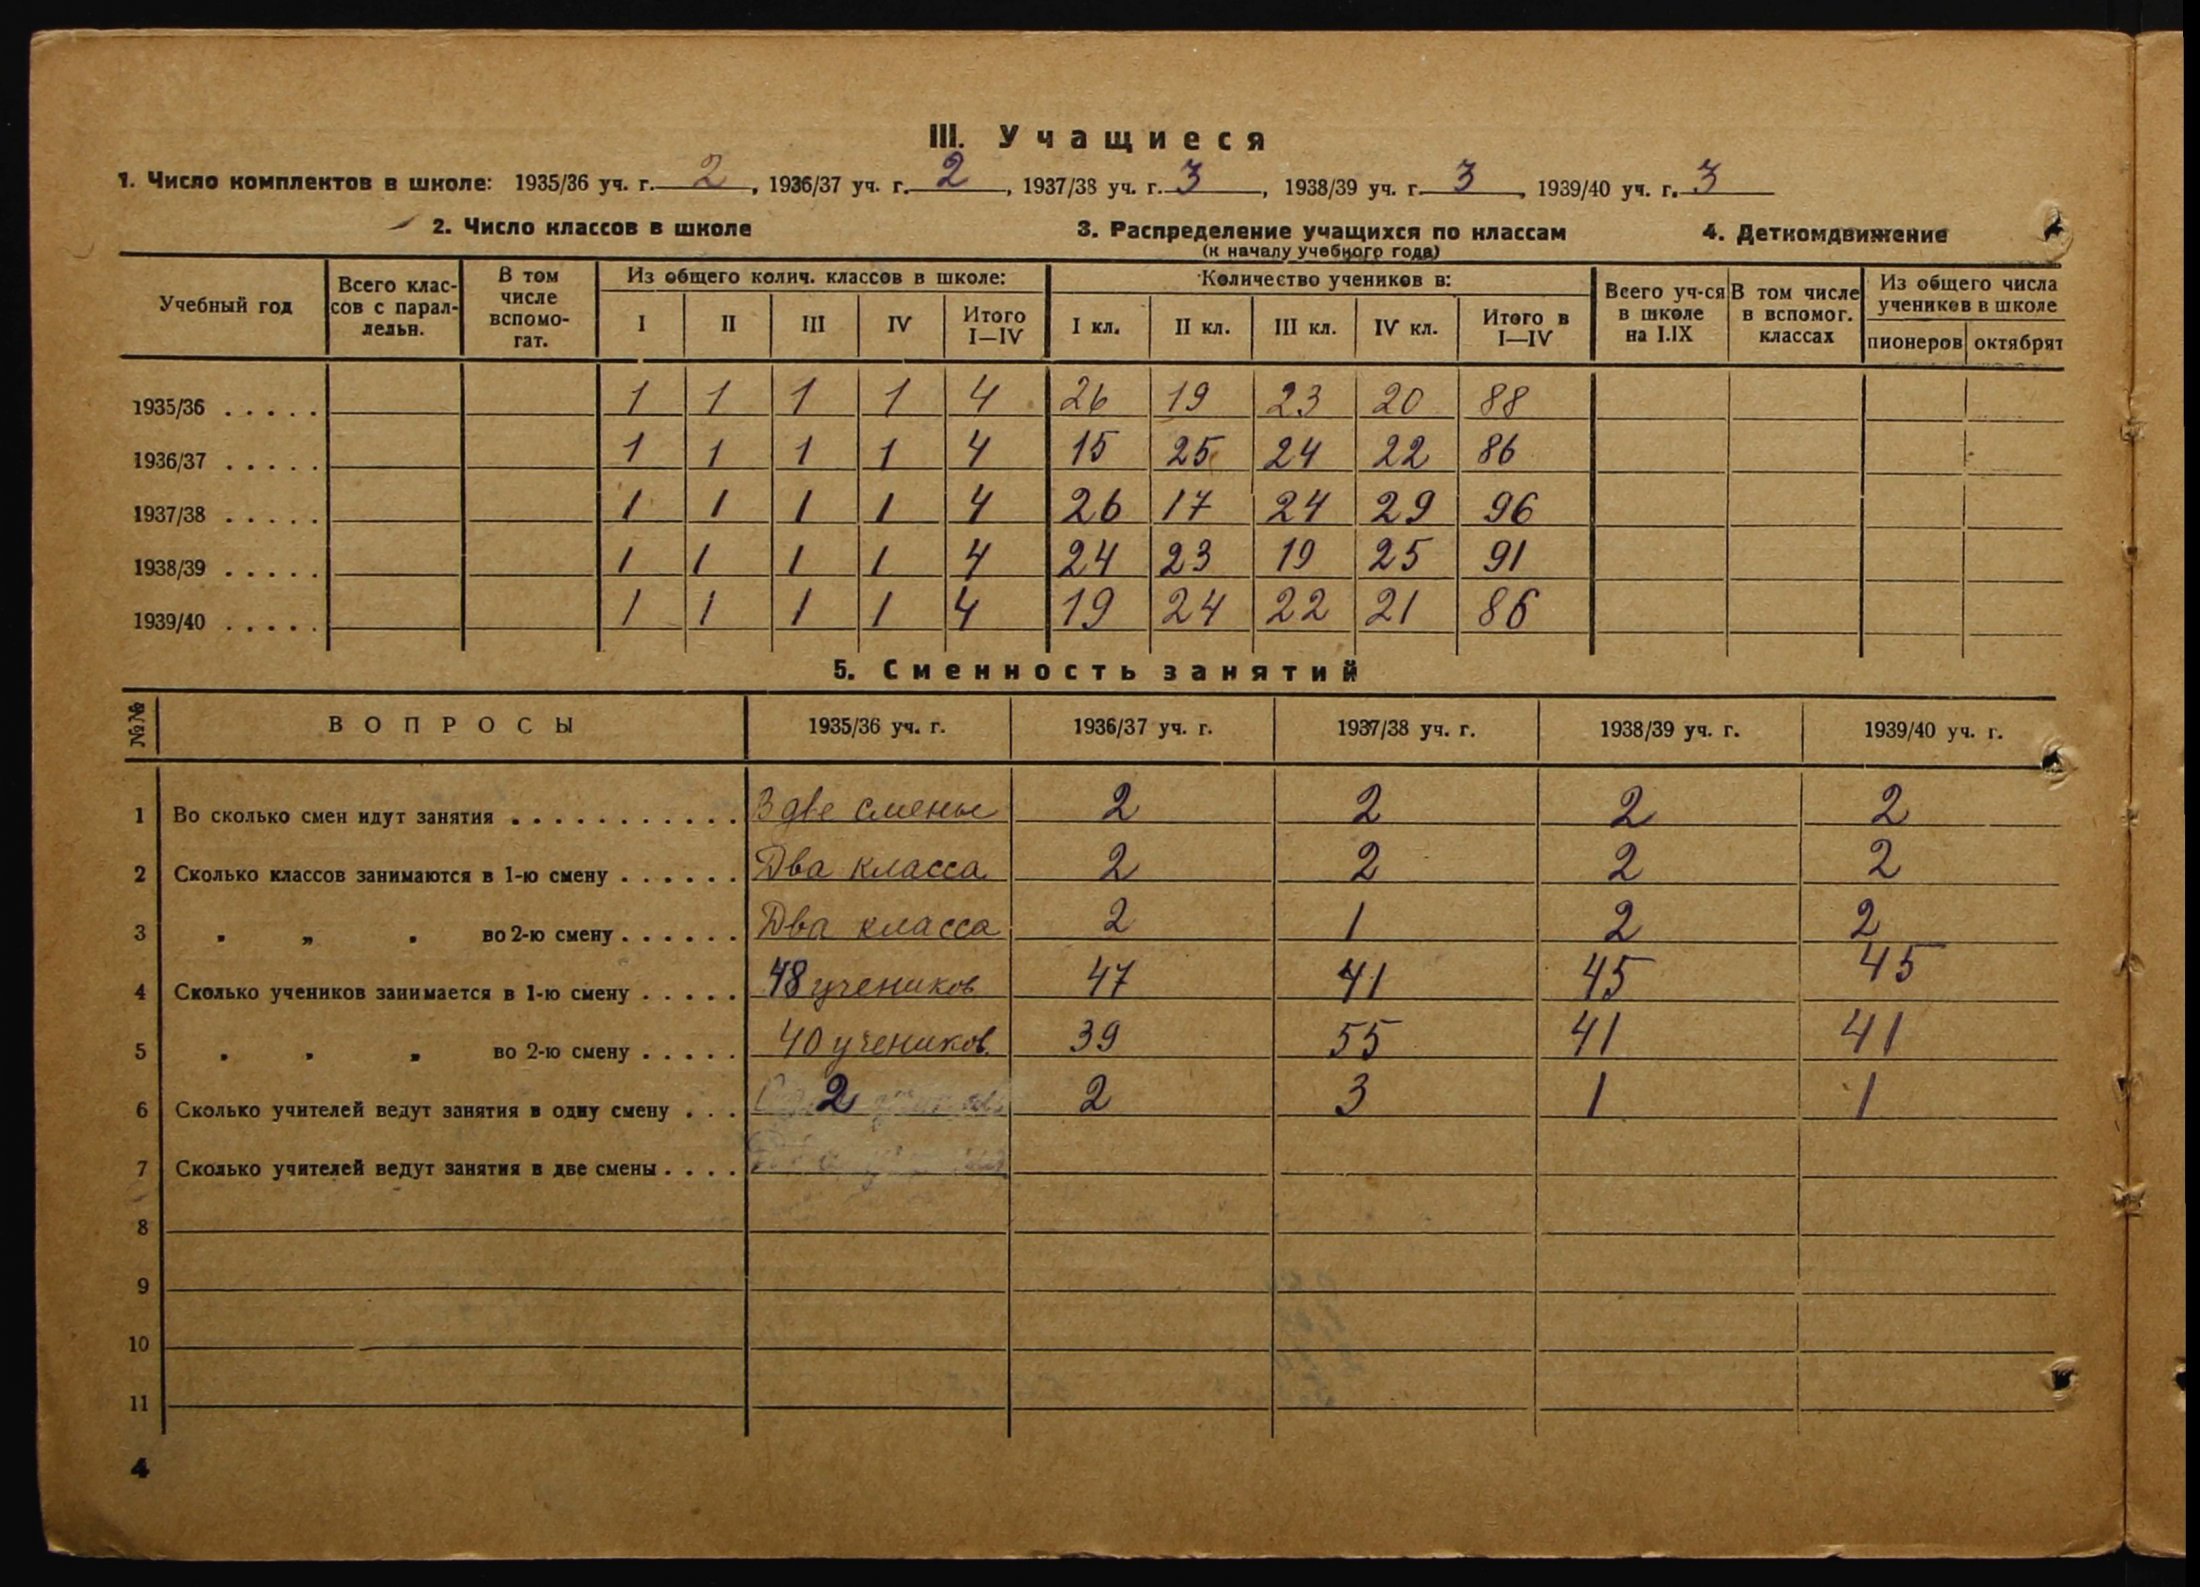 III. Учащиеся
1. Число комплектов в школе: 1935/36 уч. г. 2, 1936/37 уч. г. 2, 1937/38 уч. г. 3, 1938/39 уч. г. 3, 1939/40 уч. г. 3
2. Число классов в школе 3. Распределение учащихся по классам 4. Деткомдвижение
(к началу учебного года)
Учебный год Всего классов с параллельн. В том числе вспомогат. Из общего колич. классов в школе: Количество учеников в: Всего уч-ся в школе на 1.IX В том числе в вспомог. классах Из общего числа учеников в школе
I II III IV Итого I—IV I кл. II кл. III кл. IV кл. Итого в I—IV пионеров октябрят
1935/36 . . . . . 1 1 1 1 4 26 19 23 20 88
1936/37 . . . . . 1 1 1 1 4 15 25 24 22 86
1937/38 . . . . . 1 1 1 1 4 26 17 24 29 96
1938/39 . . . . . 1 1 1 1 4 24 23 19 25 91
1939/40 . . . . . 1 1 1 1 4 19 24 22 21 86
5. Сменность занятий
№№ ВОПРОСЫ 1935/36 уч. г. 1936/37 уч. г. 1937/38 уч. г. 1938/39 уч. г. 1939/40 уч. г.
1 Во сколько смен идут занятия . . . . . . . . . . . В две смены 2 2 2 2
2 Сколько классов занимаются в 1-ю смену . . . . . . Два класса 2 2 2 2
3 „ „ „ во 2-ю смену . . . . . . Два класса 2 1 2 2
4 Сколько учеников занимается в 1-ю смену . . . . . 48 учеников 47 41 45 45
5 „ „ „ во 2-ю смену . . . . . 40 учеников 39 55 41 41
6 Сколько учителей ведут занятия в одну смену . . . 2 2 3 1 1
7 Сколько учителей ведут занятия в две смены . . . .
8
9
10
11
4